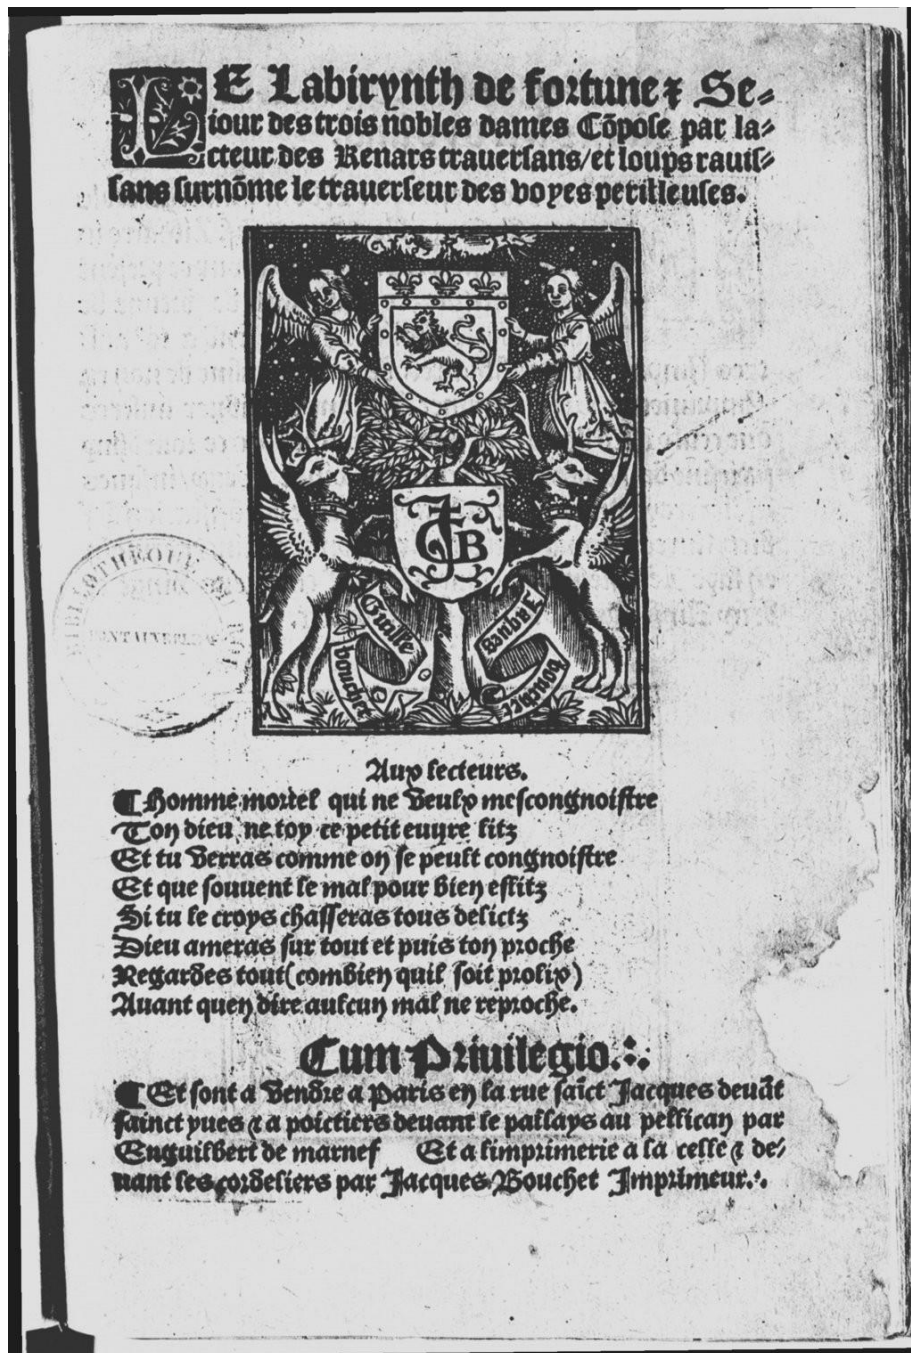 LE Labirynth de fortune & Se-
iour des trois nobles dames Cōpose par la-
cteur des Renars trauersans/et loups rauis-
sans surnōme le trauerseur des voyes perilleuses.
JCB
Guille
bouchet
Jaques
bouchet
BIBLIOTHEQUE
Aux lecteurs.
¶ Homme mortel qui ne veulx mescongnoistre
Ton dieu ne toy ce petit euure litz
Et tu verras comme on se peult congnoistre
Et que souuent le mal pour bien eslitz
Si tu le croys chasseras tous delictz
Dieu ameras sur tout et puis ton proche
Regardes tout (combien quil soit prolix)
Auant quen dire aulcun mal ne reproche.
Cum Priuilegio.
¶ Et sont a vendre a Paris en la rue saīct Jacques deuāt
sainct yues & a poictiers deuant le pallays au pellican par
Enguilbert de marnef Et a limprimerie a la celle & de-
uant les cordeliers par Jacques Bouchet Imprimeur.